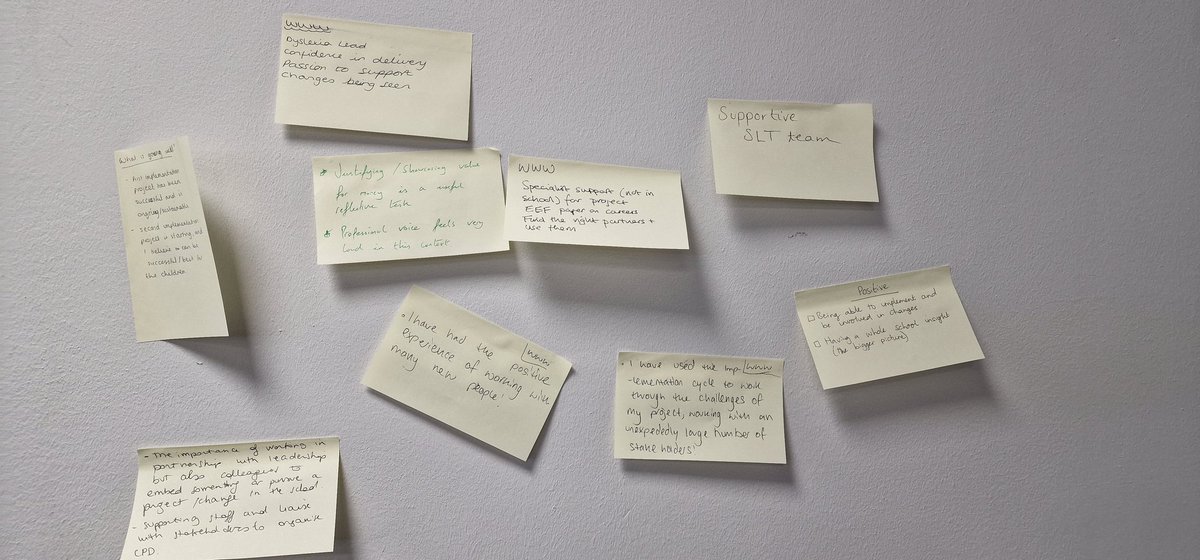 WWW
Dyslexia Lead
Confidence in delivery
Passion to support
Changes being seen
Supportive
SLT team
What is going well
- First implementation
project has been
successful and is
ongoing/sustainable
- second implementation
project is starting and
I believe can be
successful/best for
the children
• Justifying / Showcasing value
for money is a useful
reflective task
• Professional voice feels very
loud in this context
WWW
Specialist support (not in
school) for project
EEF paper on careers
Find the right partners +
use them
Positive
□ Being able to implement and
be involved in changes
□ Having a whole school insight
(the bigger picture)
• I have had the positive
WWW
experience of working with
many new people!
• I have used the imp-
WWW
-lementation cycle to work
through the challenges of
my project, working with an
unexpectedly large number of
stake holders'
- The importance of working in
partnership with leadership
but also colleagues to
embed something or pursue a
project/change in the school
- Supporting staff and liaise
with stakeholders to organise
CPD